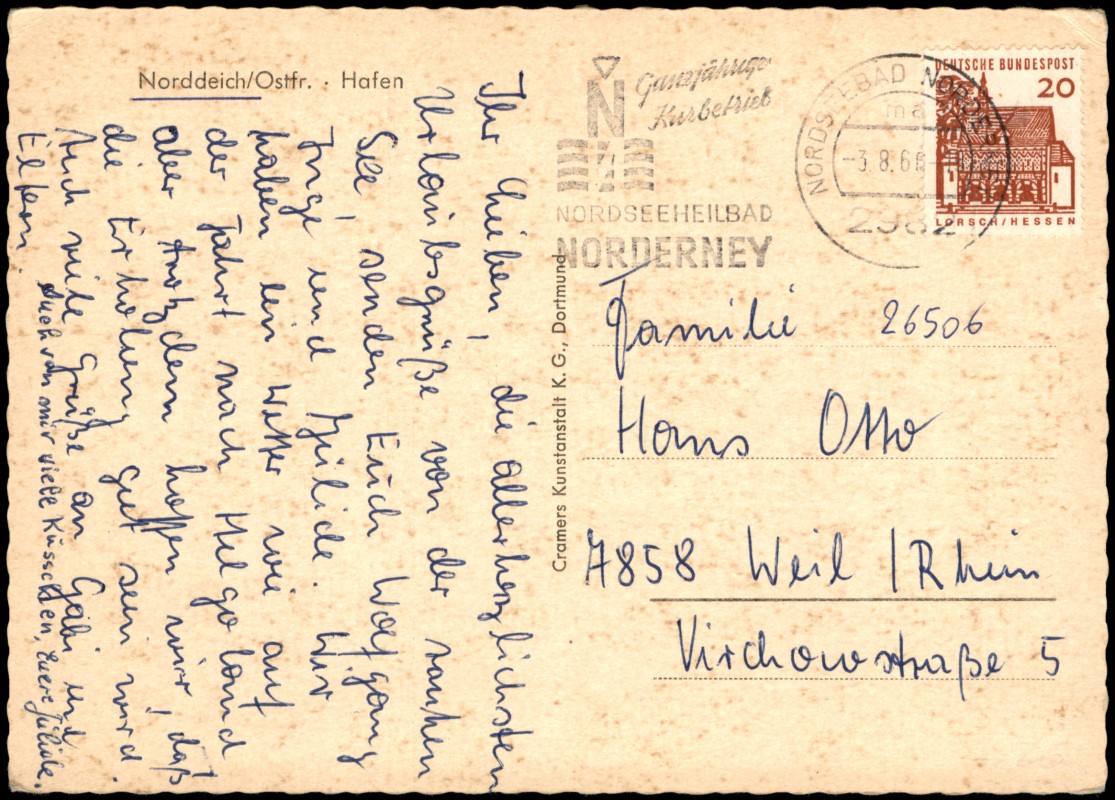 Norddeich/Ostfr. · Hafen
Ihr Lieben, die allerherzlichsten
Urlaubsgrüße von der rauhen
See, senden Euch Wolfgang
Inge und Jülide. Wir
haben ein Wetter wie auf
der Fahrt nach Helgoland
aber trotzdem hoffen wir, daß
die Erholung gut sein wird.
Auch viele Grüße an Gabi und
Eltern.
Auch von mir viele Küsschen, Euere Jülide.
Cramers Kunstanstalt K. G., Dortmund
N
Ganzjähriger
Kurbetrieb
NORDSEEHEILBAD
NORDERNEY
NORDSEEBAD NORDE
ma
-3.8.66-
2982
DEUTSCHE BUNDESPOST
20
LORSCH/HESSEN
Familie 26506
Hans Otto
7858 Weil /Rhein
Virchowstraße 5